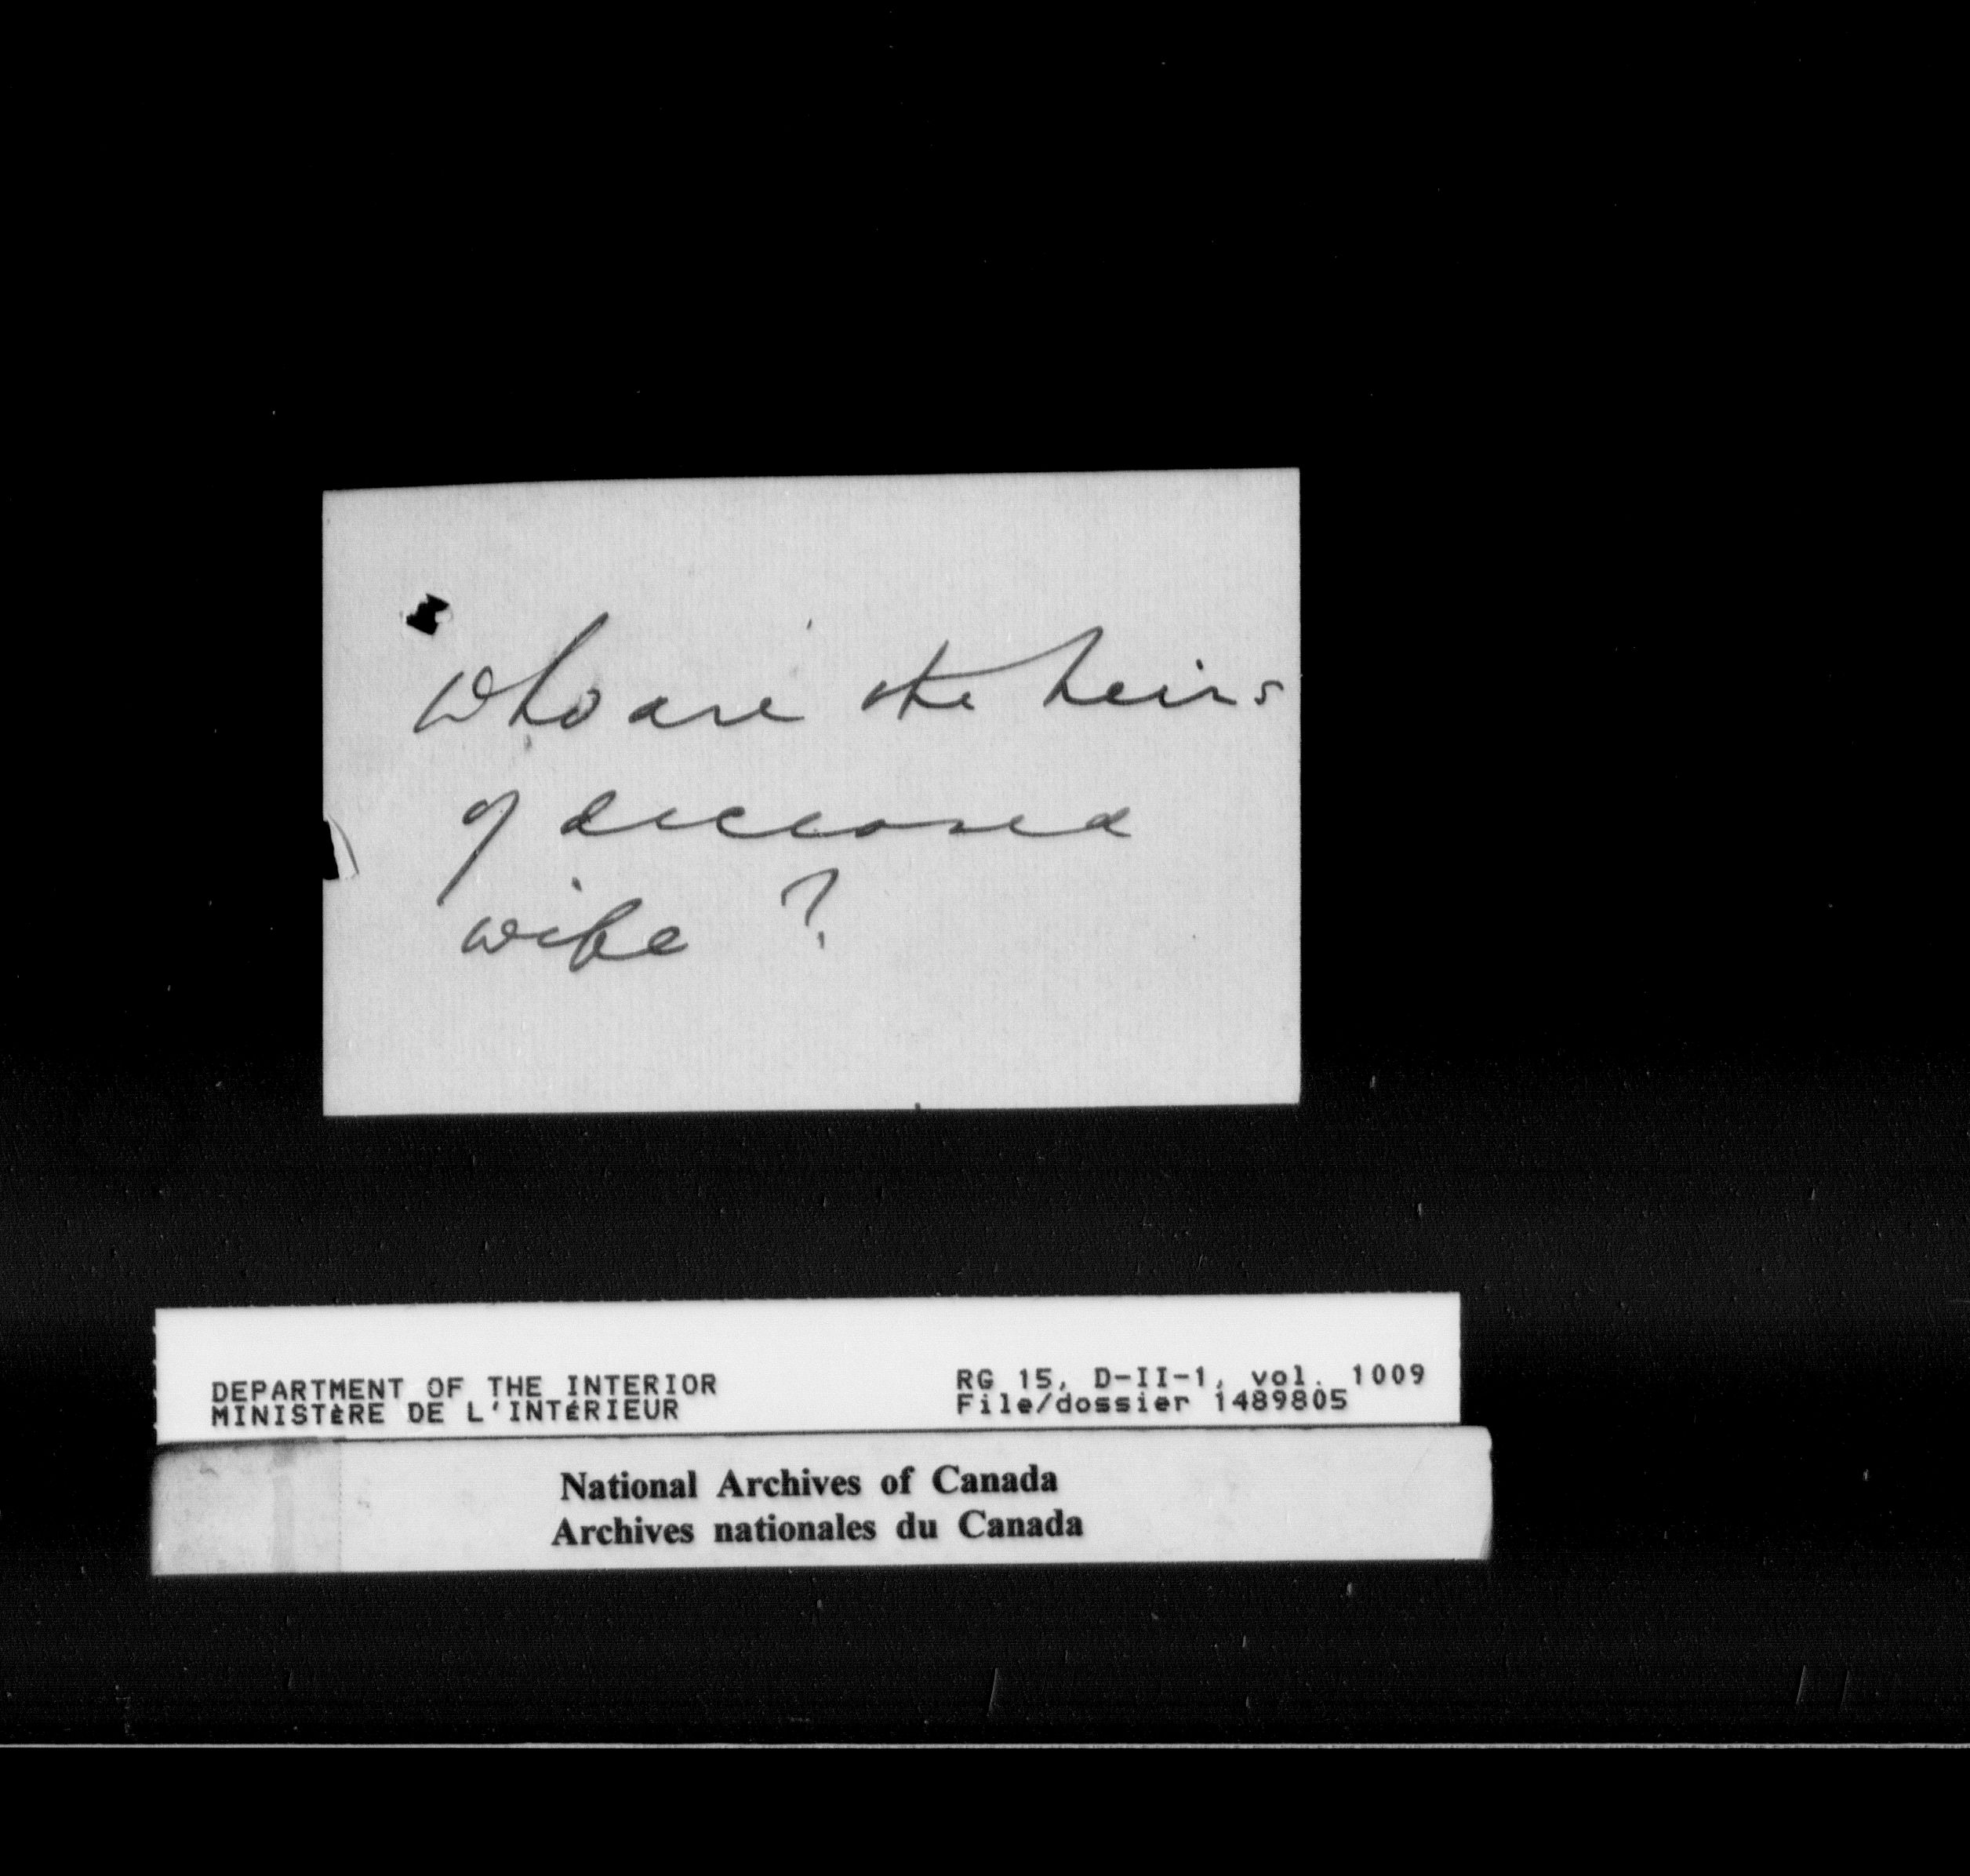 Who are the heirs
of deceased
wife ?
DEPARTMENT OF THE INTERIOR RG 15, D-II-1, vol. 1009
MINISTÈRE DE L'INTÉRIEUR File/dossier 1489805
National Archives of Canada
Archives nationales du Canada